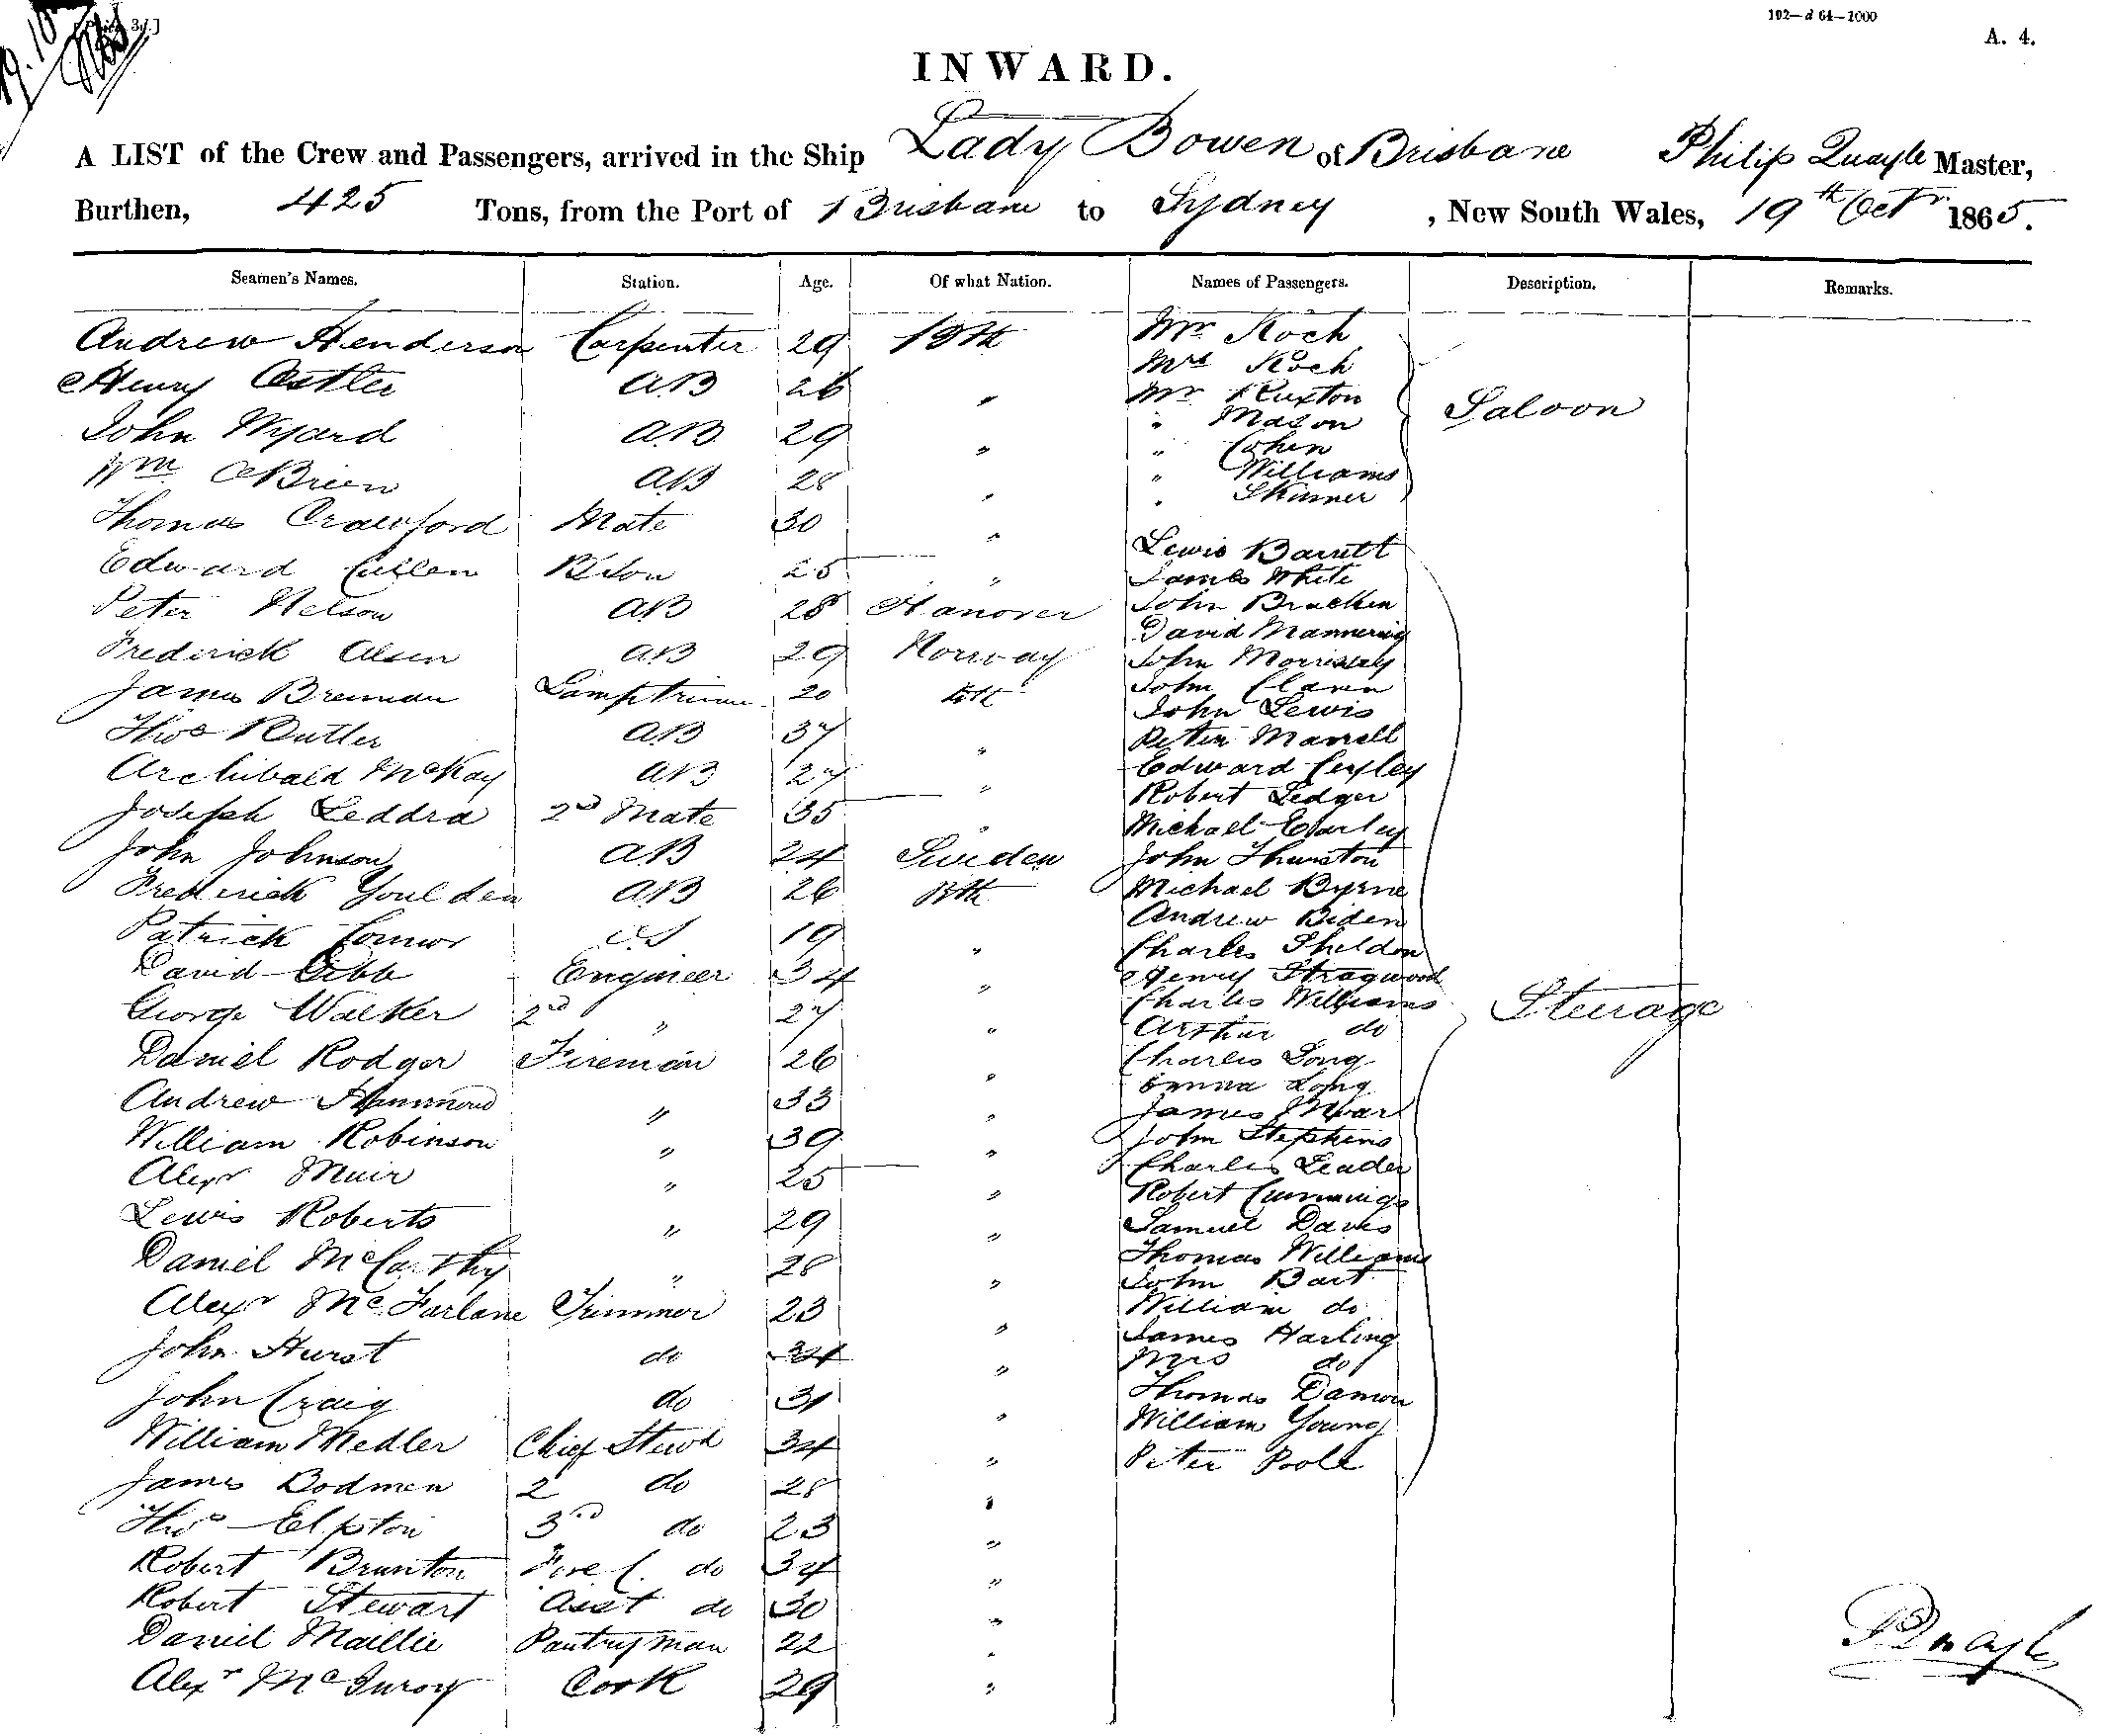 192—d 64—1000
A. 4.
INWARD.
A LIST of the Crew and Passengers, arrived in the Ship Lady Bowen of Brisbane Philip Quayle Master,
Burthen, 425 Tons, from the Port of Brisbane to Sydney, New South Wales, 19th Octr 1865.
Seamen's Names. Station. Age. Of what Nation. Names of Passengers. Description. Remarks.
Andrew Henderson Carpenter 29 Bth Mr Koch
Mrs Koch
Henry Ostler AB 26 " Mr Ruxton Saloon
" Mason
John Wyard AB 29 " " Cohen
Wm OBrien AB 28 " " Williams
" Skinner
Thomas Crawford Mate 30 "
Lewis Barrett
Edward Cullen 25 " James White
Peter Nelson AB 28 Hanover John Bracken
David Mannering
Frederick Olsen AB 29 Norway John Morrissey
James Brennan Lamptrimr 20 Bth John
John Lewis
Thos Butler AB 37 " Peter
Archibald McKay AB 27 " Edward
Robert Ledger
Joseph Leddra 2nd Mate 35 " Michael
John Johnson AB 24 Sweden John Thurston
Frederick Youlden AB 26 Bth Michael Byrne
Andrew Biden
Patrick Connor OS 19 " Charles Sheldon
David Gibb Engineer 34 " Henry Stragwood
George Walker 2nd " 27 " Charles Williams Steerage
Arthur do
Daniel Rodger Fireman 26 " Charles Long
Emma Long
Andrew Hammond " 33 " James
William Robinson " 39 " John Stephens
Alexr Muir " 25 " Charles Leader
Robert Cummings
Lewis Roberts " 29 " Samuel Davis
Thomas Williams
Daniel McCarthy " 28 " John Bart
Alexr McFarlane Trimmer 23 " William do
James Harling
John Hurst do 34 " Mrs do
John Craig do 31 " Thomas Damon
William Young
William Medler Chief Stewd 34 " Peter Poole
James Bodmen 2 do 28 "
Thos Elpton 3rd do 23 "
Robert Brunton Fore C. do 34 "
Robert Stewart Asst do 30 "
Daniel Maillie Pantryman 22 "
PQuayle
Alexr Cook 29 "